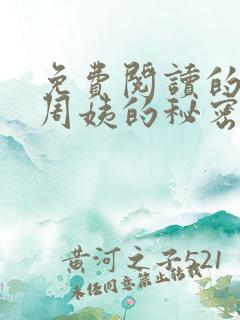 免費閱讀的
周姨的秘密
黄河之子521
未经同意禁止转载